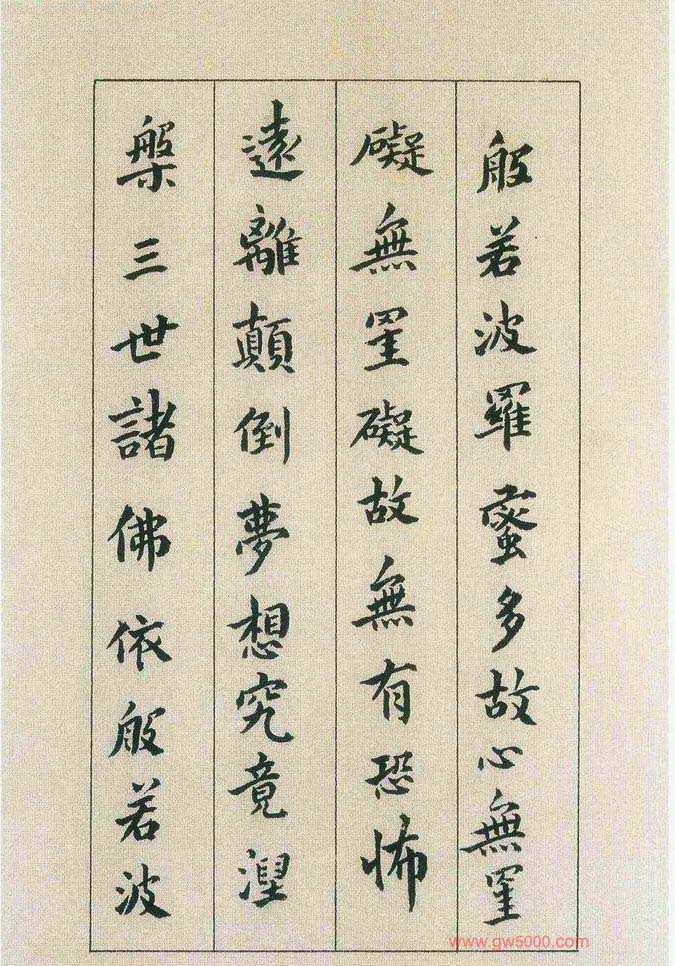 般若波羅蜜多故心無罣
礙無罣礙故無有恐怖
遠離顛倒夢想究竟湼
槃三世諸佛依般若波
www.gw5000.com